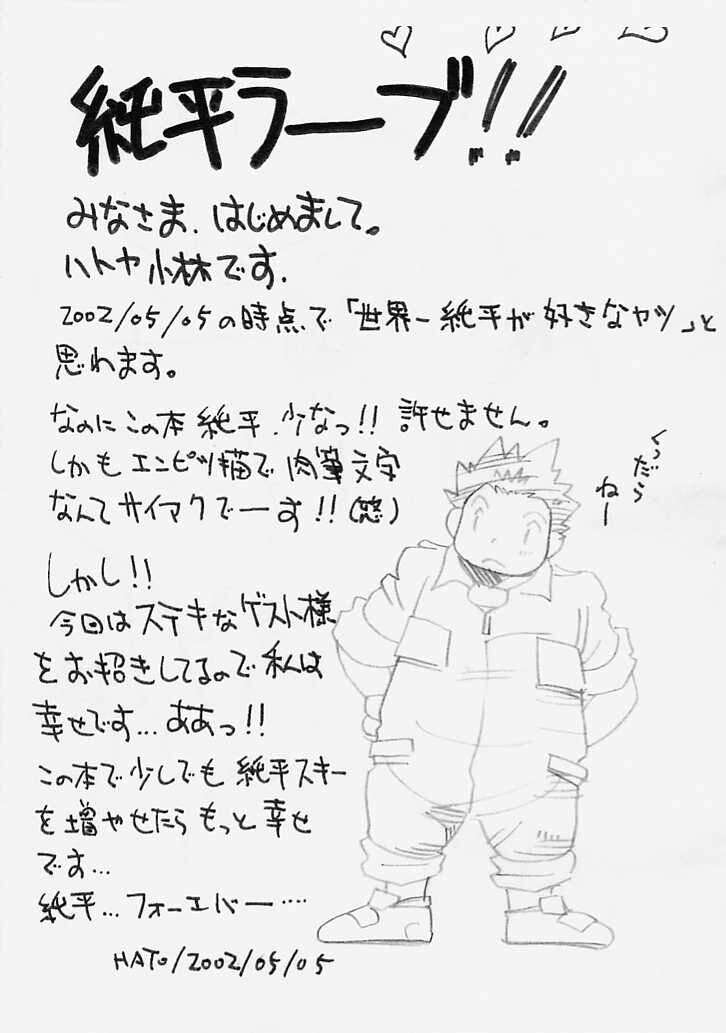 純平ラーブ!!
みなさま、はじめまして。
ハトヤ小林です.
2002/05/05の時点で「世界一純平が好きなヤツ」と
思われます。
なのにこの本純平、少なっ!! 許せません。
しかもエンピツ描で肉筆文字
なんてサイアクでーす!!(怒)
しかし!!
今回はステキなゲスト様
をお招きしてるので私は
幸せです…ああっ!!
この本で少しでも純平スキー
を増やせたらもっと幸せ
です…
純平…フォーエバー……
HATO/2002/05/05
くっだら
ねー